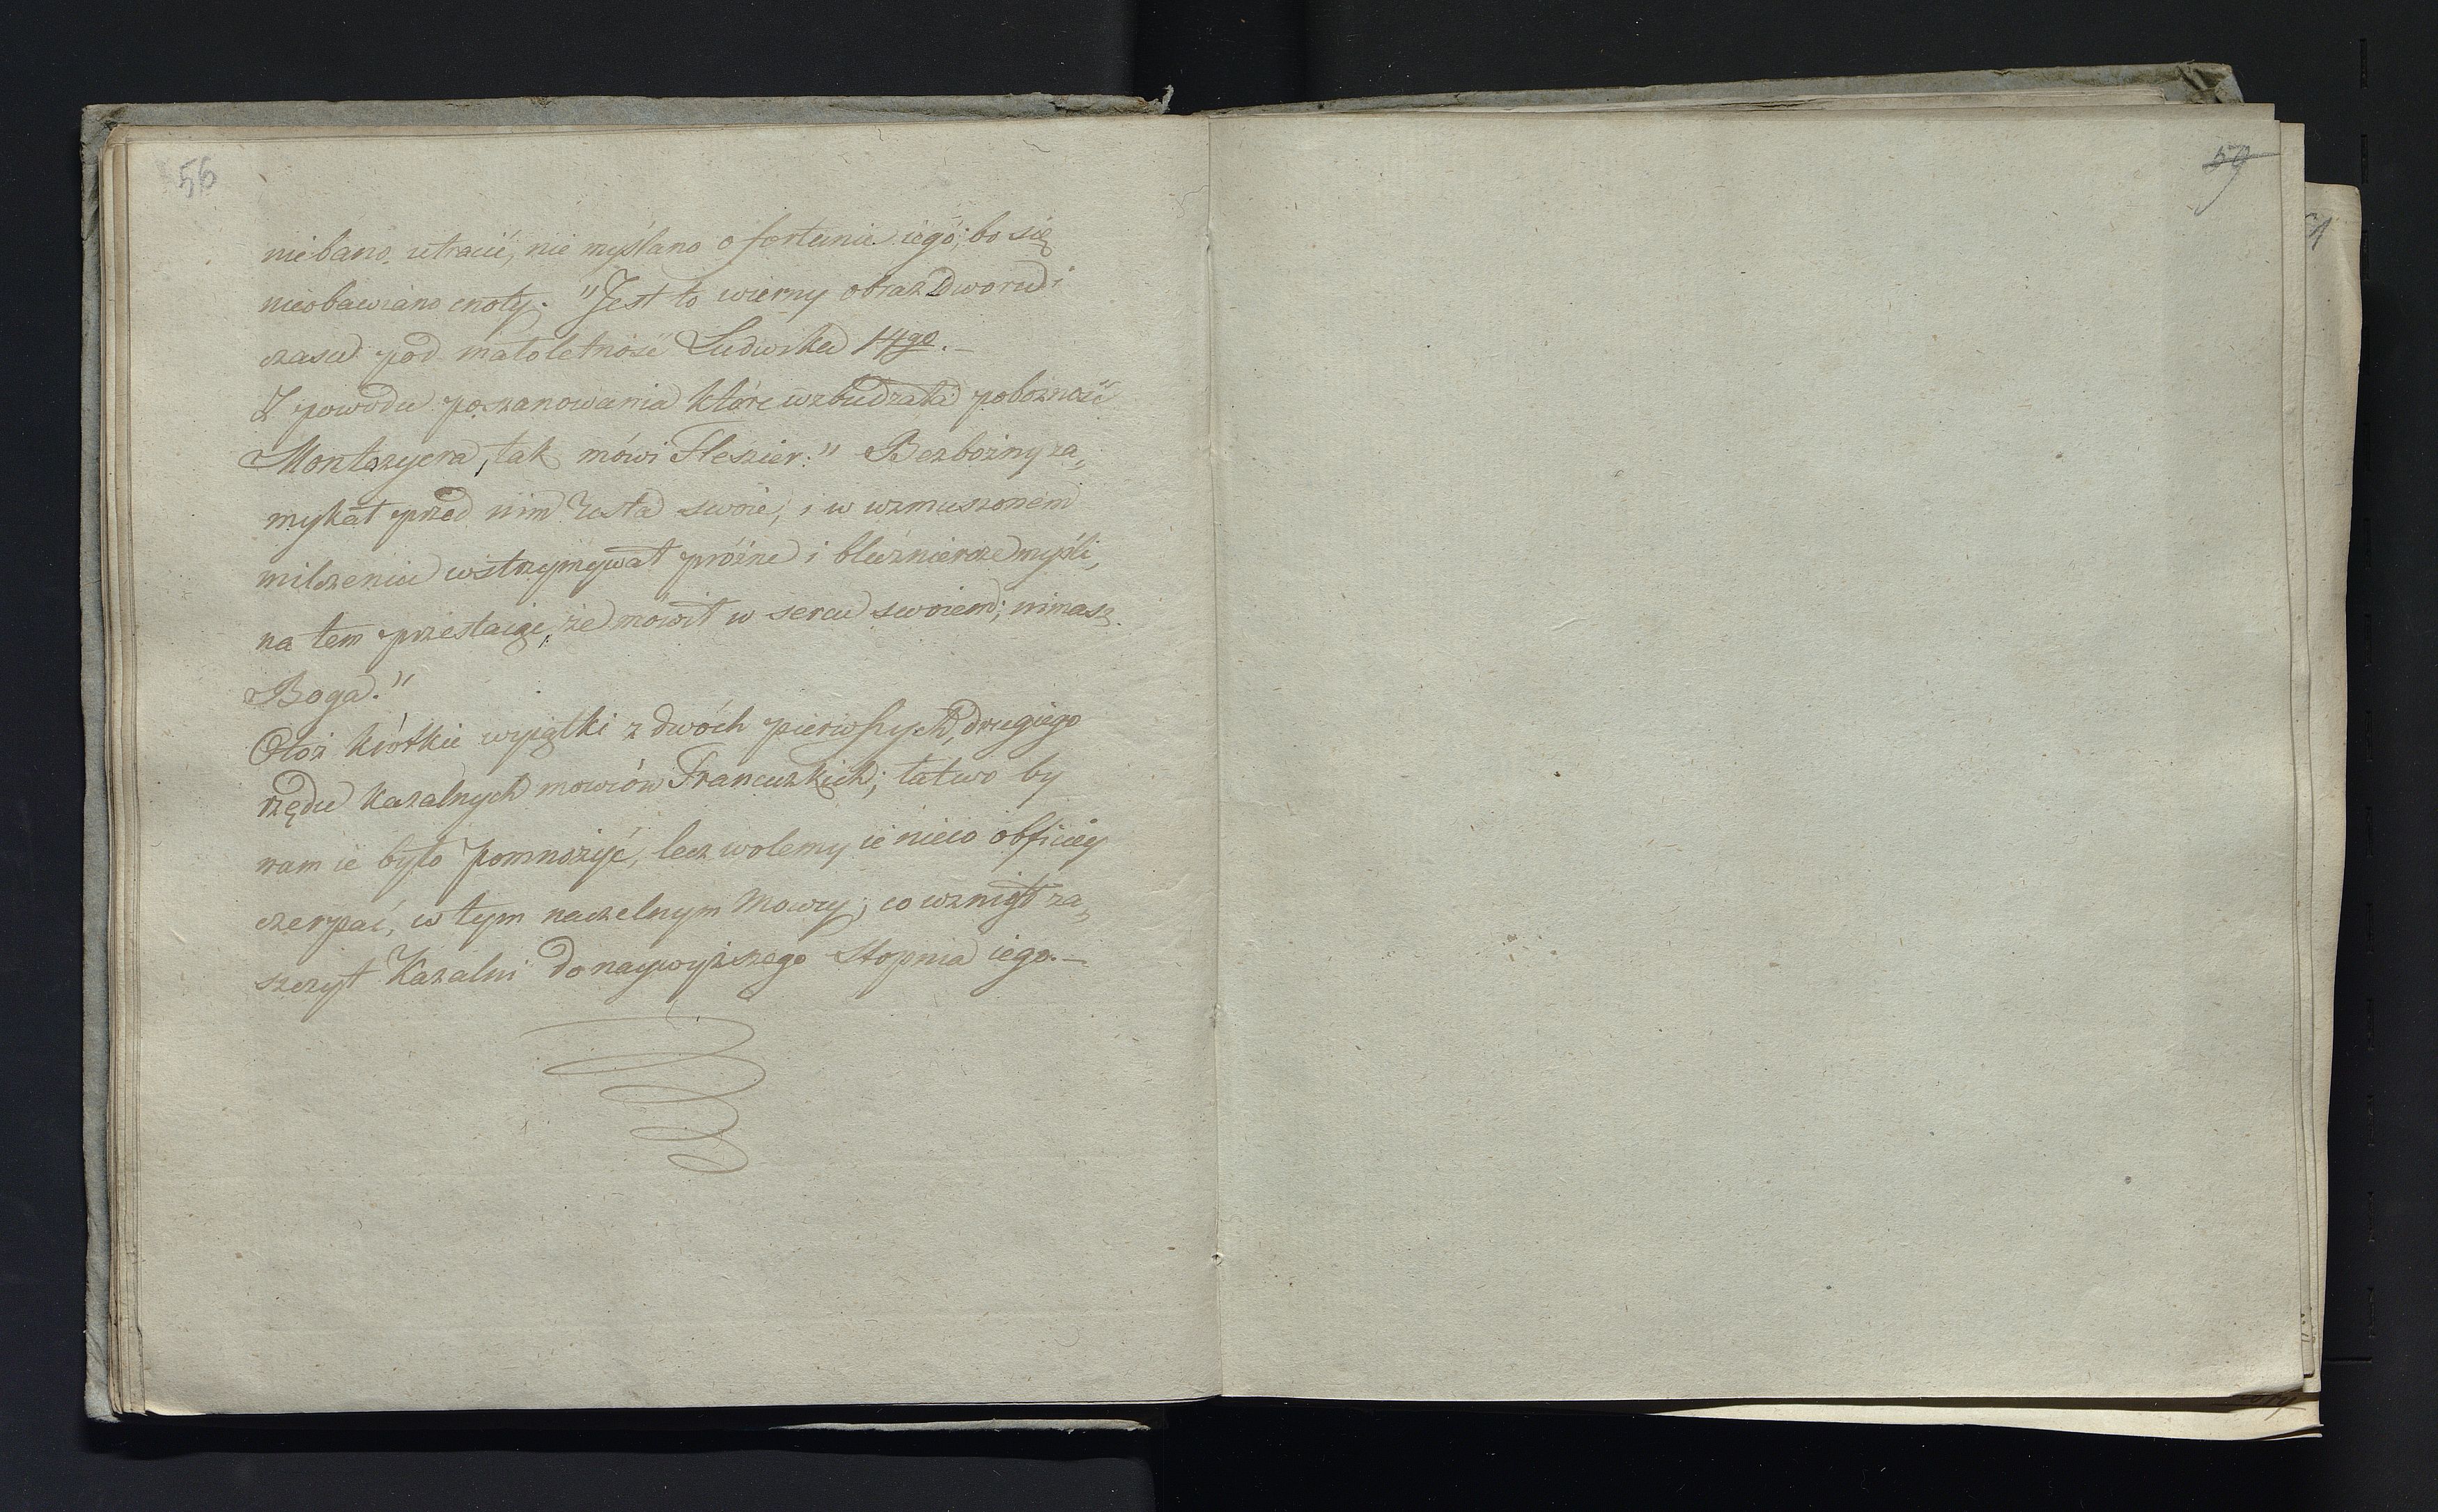 56
niebano utracić, nie myślano o fortunie iego; bo się
nieobawiano cnoty. "Jest to wierny obraz Dworu i
czasu pod małoletność Ludwika 14go.—
Z powodu poszanowania które wzbudzała pobozność
Montozyera, tak mówi Fleszier:" Bezbożny za„
mykał przed nim Usta swoie, i w wzmuszonem
milczeniu wstrzymywał próżne i bluźniercze myśli,
na tem przestaiąc, że mówił w sercu swoiem; nimasz
Boga."
Otoż krótkie wyiątki z dwóch pierwszych, drugiego
rzędu kazalnych mowców Francuzkich; łatwo by
nam ie było pomnożyć, lecz wolemy ie nieco obficiey
czerpać, w tym naczelnym Mowcy; co wzniosł za„
szczyt Kazalni do naywyższego Stopnia iego.—
59